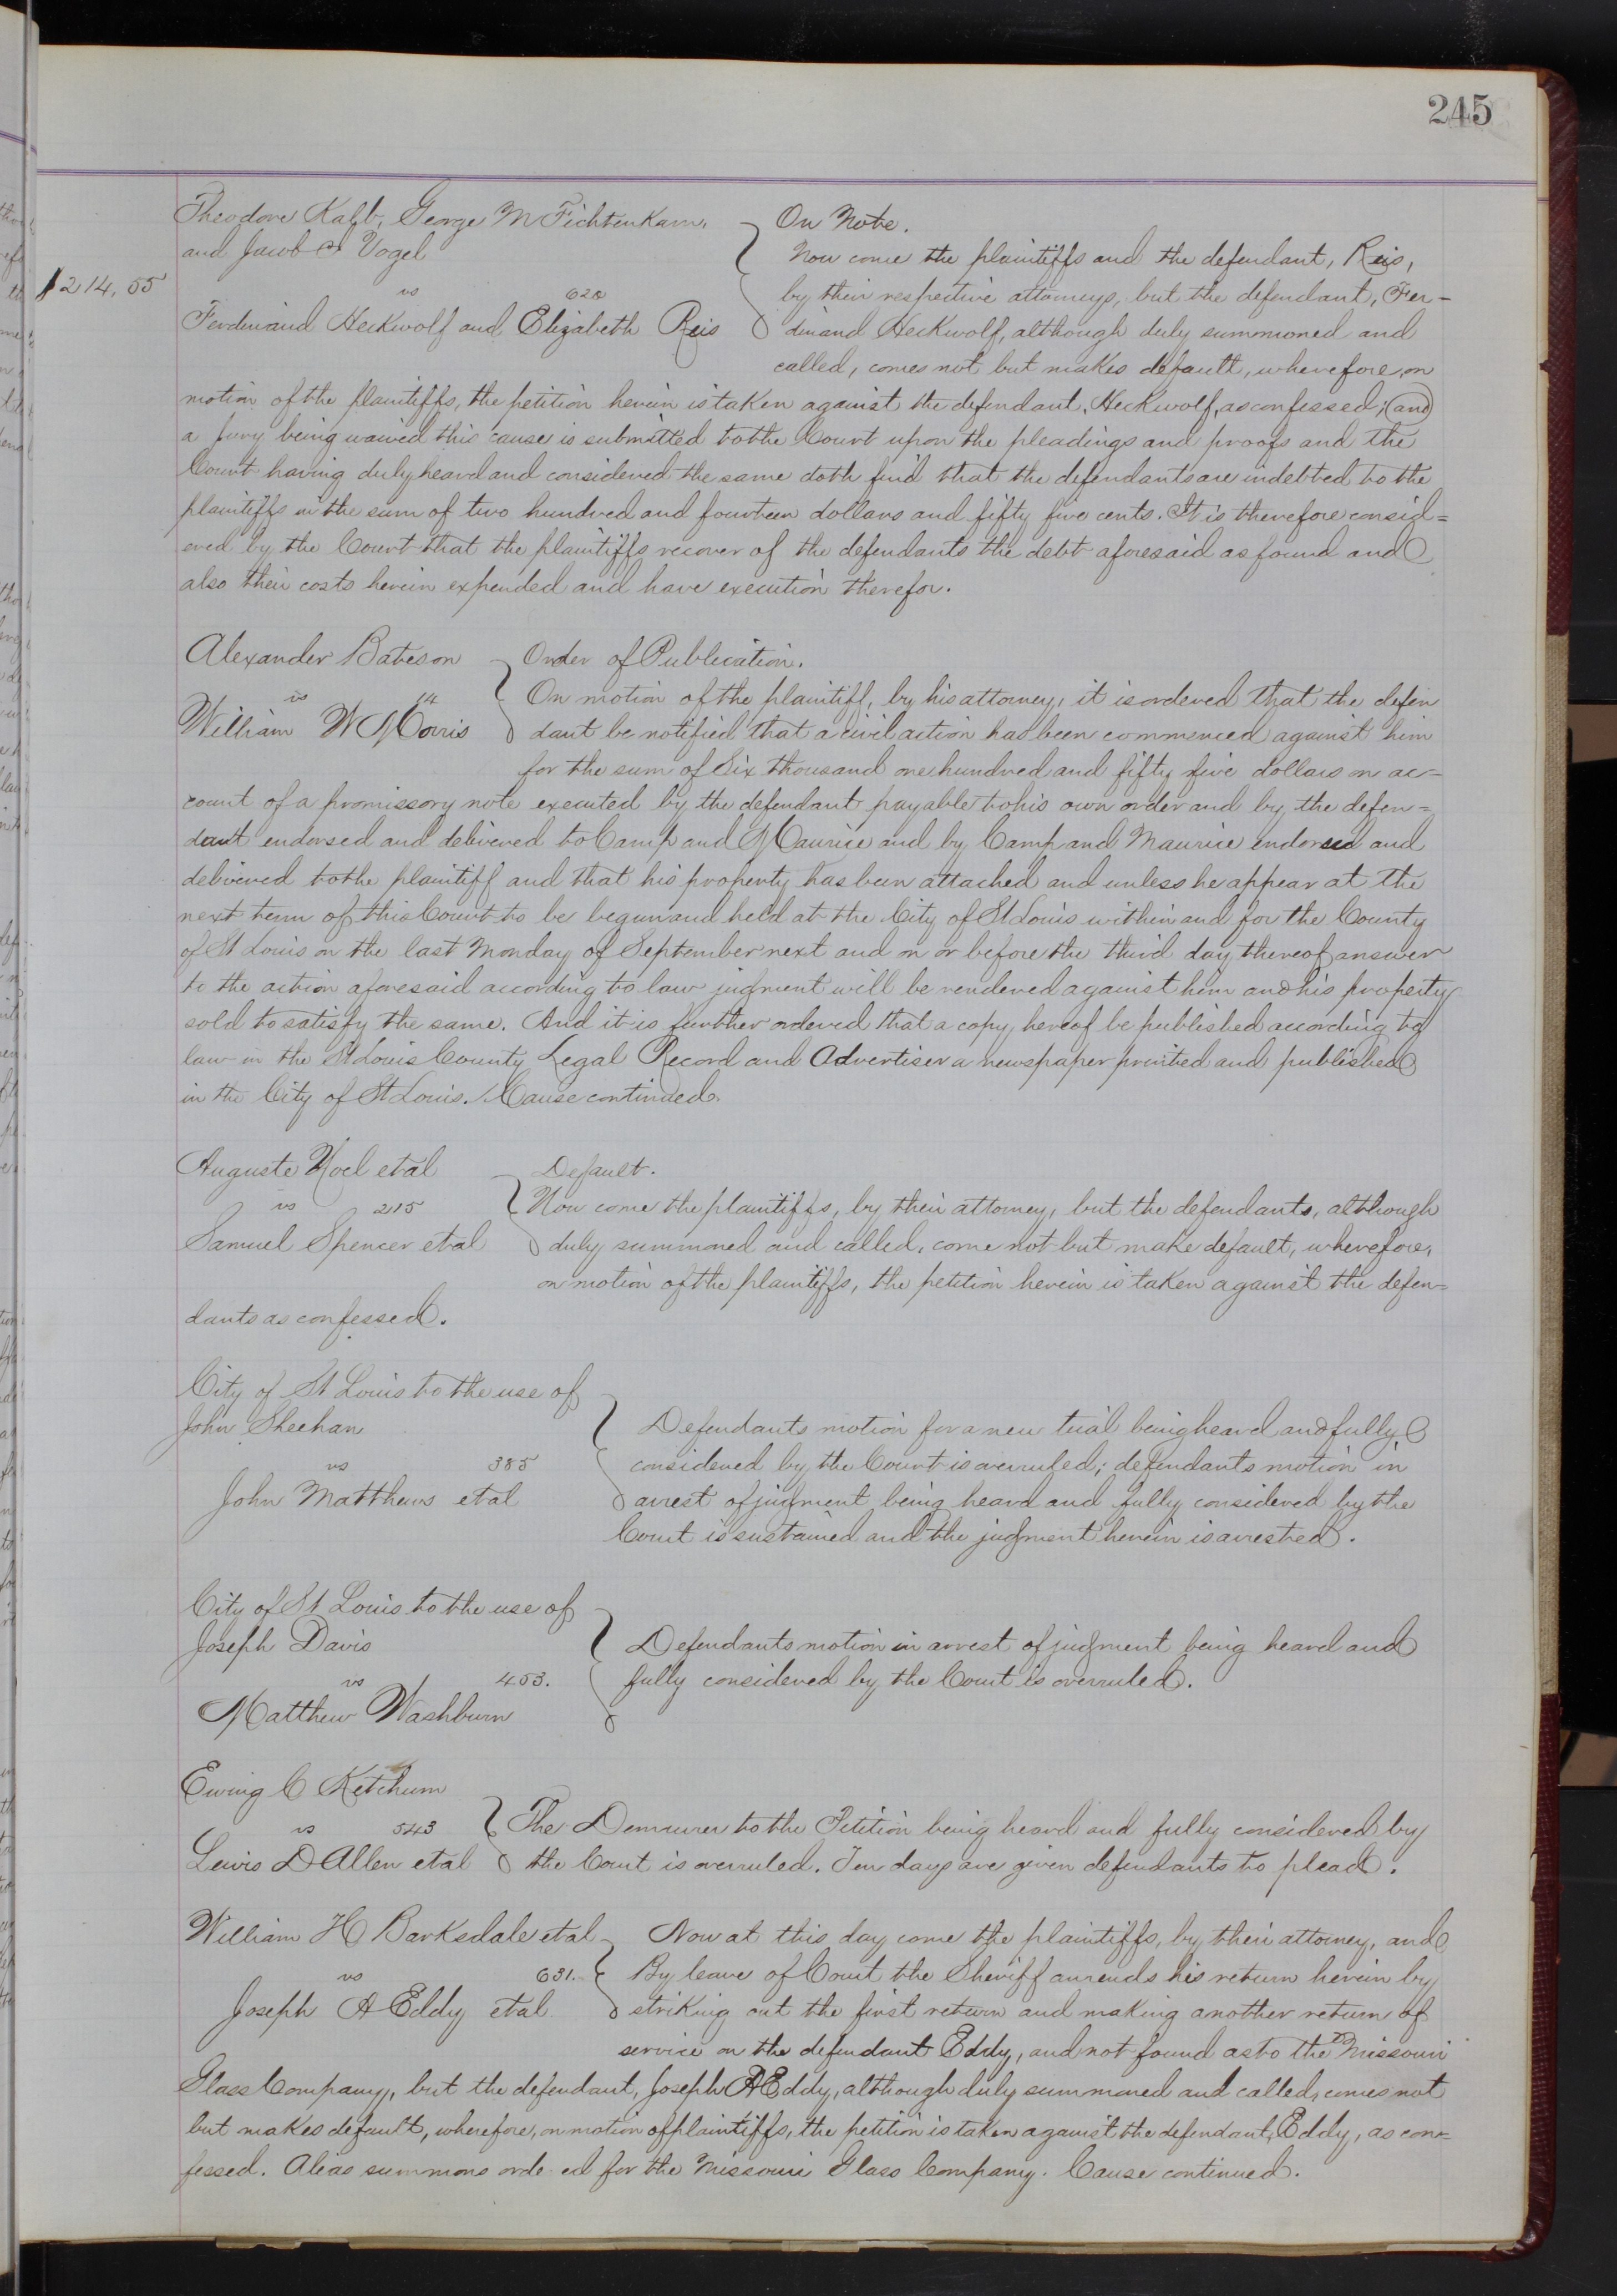 245
Theodore Kalb, George M Fichtenkam,
and Jacob Vogel
$214,55
vs 628
Ferdinand Heckwolf and Elizabeth Reis
On Note.
Now come the plaintiffs and the defendant, Reis,
by their respective attorneys, but the defendant, Fer-
dinand Heckwolf, although duly summoned and
called, comes not but makes default, wherefore, on
motion of the plaintiffs, the petition herein is taken against the defendant, Heckwolf, as confessed; and
a jury being waived this cause is submitted to the Court upon the pleadings and proofs and the
Court having duly heard and considered the same doth find that the defendants are indebted to the
plaintiffs in the sum of two hundred and fourteen dollars and fifty five cents. It is therefore consid=
ered by the Court that the plaintiffs recover of the defendants the debt aforesaid as found and
also their costs herein expended and have execution therefor.
Alexander Bateson
vs 14
William W Morris
Order of Publication.
On motion of the plaintiff, by his attorney, it is ordered that the defen
dant be notified that a civil action has been commenced against him
for the sum of Six thousand one hundred and fifty five dollars on ac-
count of a promissory note executed by the defendant payable to his own order and by the defen=
dant endorsed and delivered to Camp and Maurice and by Camp and Maurice endorsed and
delivered to the plaintiff and that his property has been attached and unless he appear at the
next term of this Court to be begun and held at the City of St Louis within and for the County
of St Louis on the last Monday of September next and on or before the third day thereof answer
to the action aforesaid according to law judgment will be rendered against him and his property
sold to satisfy the same. And it is further ordered that a copy hereof be published according to
law in the St Louis County Legal Record and Advertiser a newspaper printed and published
in the City of St Louis. Cause continued.
Auguste Noel etal
vs 215
Samuel Spencer etal
Default.
Now come the plaintiffs, by their attorney, but the defendants, although
duly summoned and called, come not but make default, wherefore,
on motion of the plaintiffs, the petition herein is taken against the defen=
dants as confessed.
City of St Louis to the use of
John Sheehan
vs 385
John Matthews etal
Defendants motion for a new trial being heard and fully
considered by the Court is overruled; defendants motion in
arrest of judgment being heard and fully considered by the
Court is sustained and the judgment herein is arrested.
City of St Louis to the use of
Joseph Davis
vs 453.
Matthew Washburn
Defendants motion in arrest of judgment being heard and
fully considered by the Court is overruled.
Ewing C Ketchum
vs 543
Lewis D Allen etal
The Demurrer to the Petition being heard and fully considered by
the Court is overruled. Ten days are given defendants to plead.
William H Barksdale etal
vs 631.
Joseph A Eddy etal
Now at this day come the plaintiffs, by their attorney, and
By leave of Court the Sheriff amends his return herein by
striking out the first return and making another return of
service on the defendant Eddy, and not found as to the Missouri
Glass Company, but the defendant, Joseph A Eddy, although duly summoned and called, comes not
but makes default, wherefore, on motion of plaintiffs, the petition is taken against the defendant, Eddy, as con=
fessed. Alias summons ordered for the Missouri Glass Company. Cause continued.